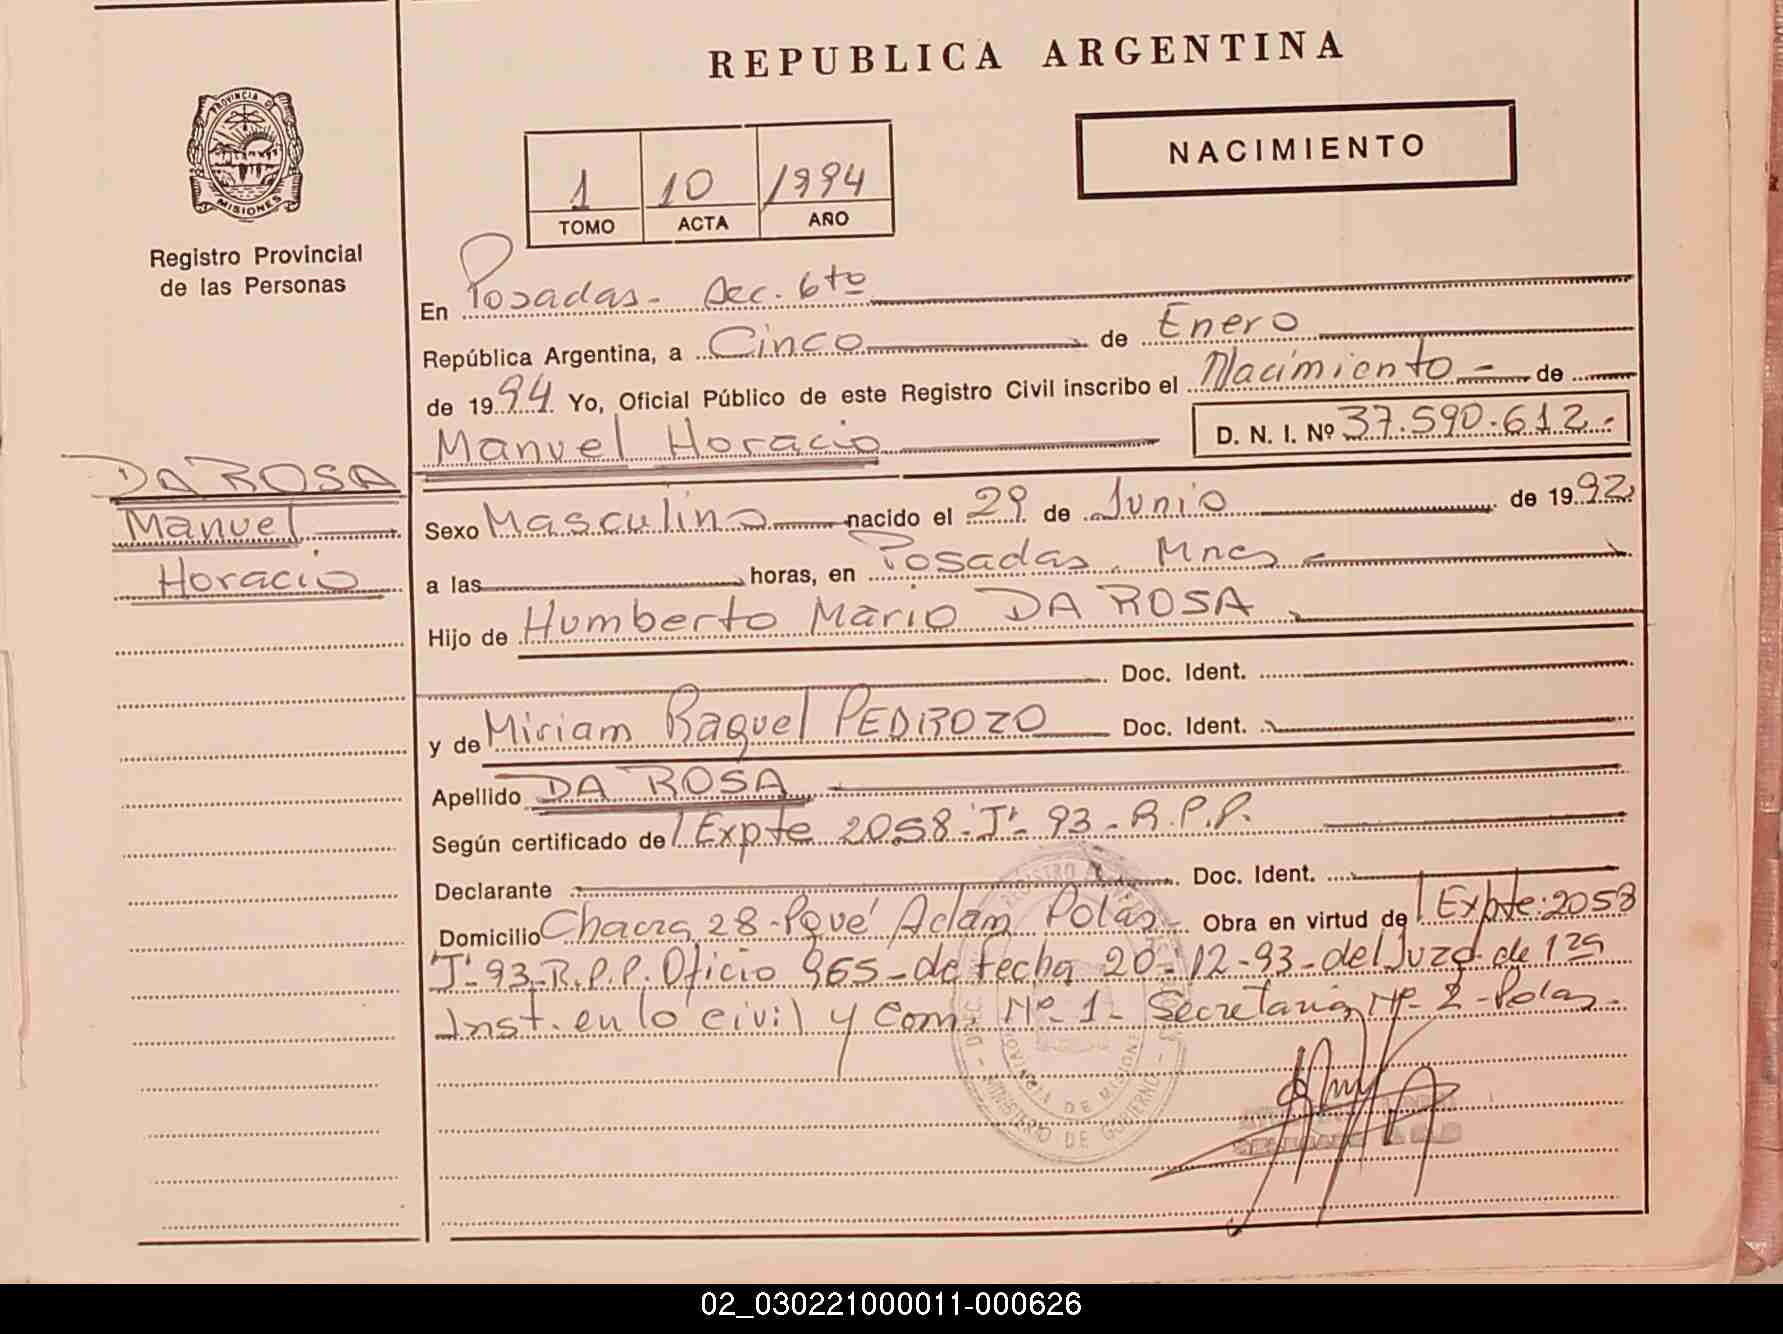 REPUBLICA ARGENTINA
PROVINCIA D
MISIONES
Registro Provincial
de las Personas
NACIMIENTO
1 10 1994
TOMO ACTA AÑO
En Posadas - Sec. 6to
República Argentina, a Cinco de Enero
de 1994 Yo, Oficial Público de este Registro Civil inscribo el Nacimiento - de
Manuel Horacio D. N. I. Nº 37.590.612.-
DA ROSA
Manuel
Horacio
Sexo Masculino nacido el 29 de Junio de 1992
a las horas, en Posadas. Mnes
Hijo de Humberto Mario DA ROSA
Doc. Ident.
y de Miriam Raquel PEDROZO Doc. Ident.
Apellido DA ROSA
Según certificado de Expte 2058-"J"-93-R.P.P.
Declarante Doc. Ident.
Domicilio Chacra 28-Pqué Adam Pdas- Obra en virtud de Expte:2058
"J"-93-R.P.P. Oficio 965-de fecha 20-12-93-del Juzg. de 1ra
Inst. en lo civil y Com. Nº-1- Secretaria Nº-2-Pdas-
MINISTERIO DE GOBIERNO
PROVINCIA DE MISIONES
02_030221000011-000626